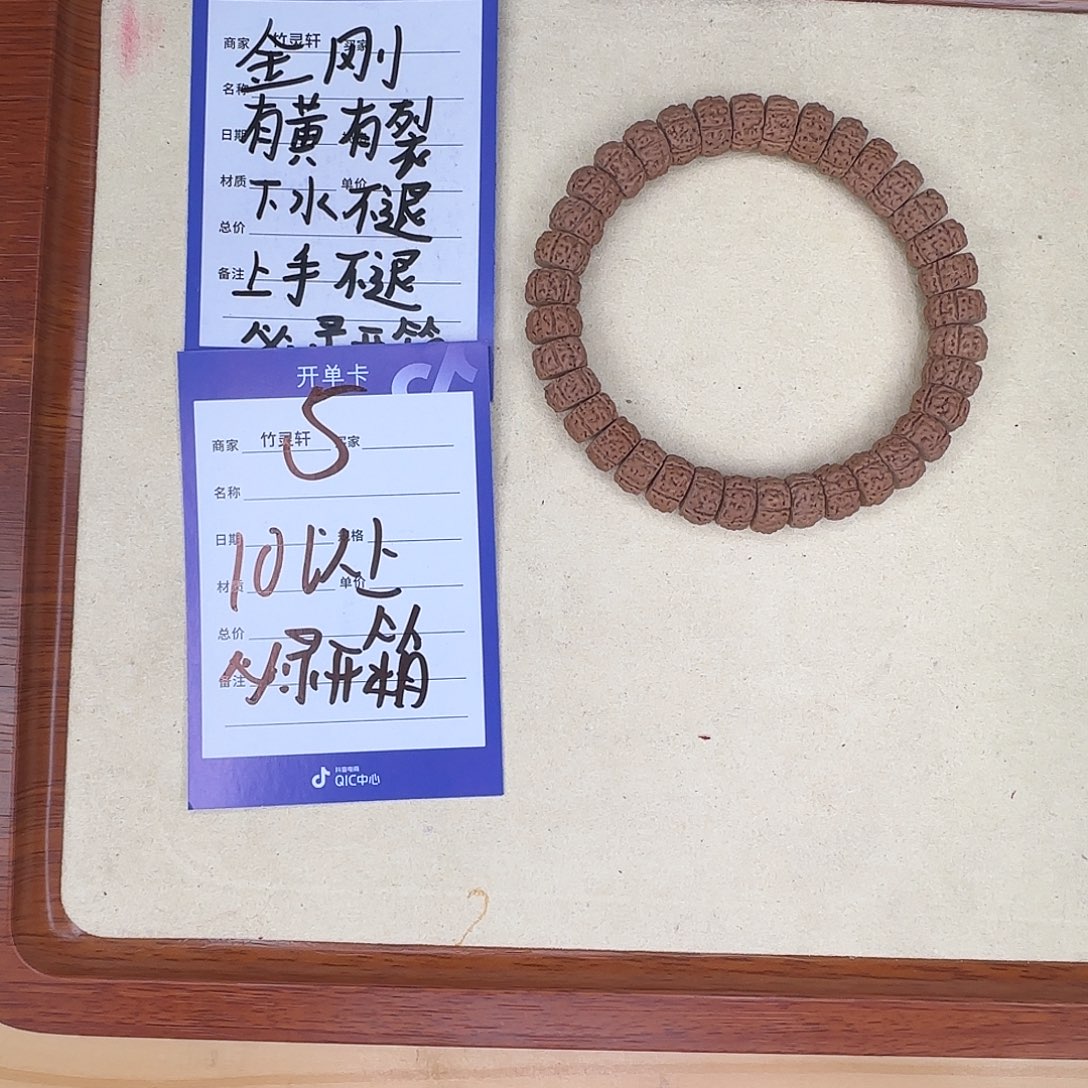 商家 竹灵轩 买家
金刚
名称
有黄有裂
日期
材质 单价
下水不退
总价
备注
上手不退
必录开箱
开单卡
5
商家 竹灵轩 买家
名称
日期 规格
10以上
材质 单价
总价
必录开箱
备注
抖音电商
QIC中心